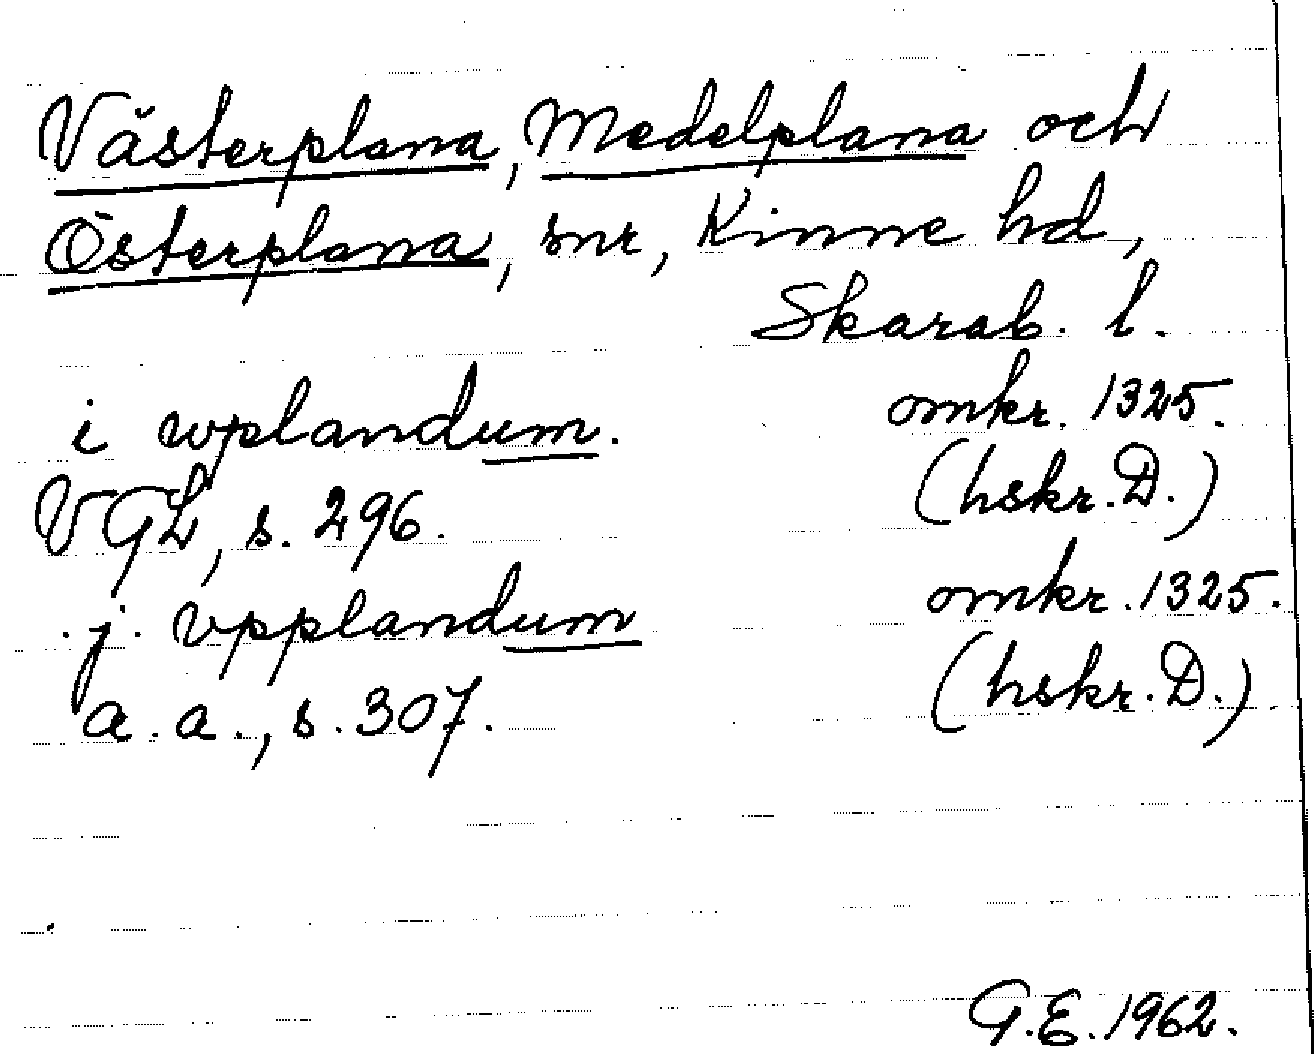 Västerplana, Medelplana och
Österplana, snr, Kinne hd,
Skarab. l.
i wplandum. omkr. 1325.
VGL, s. 296. (hskr. D.)
.j. vpplandum omkr. 1325.
a. a., s. 307. (hskr. D.)
G.E. 1962.